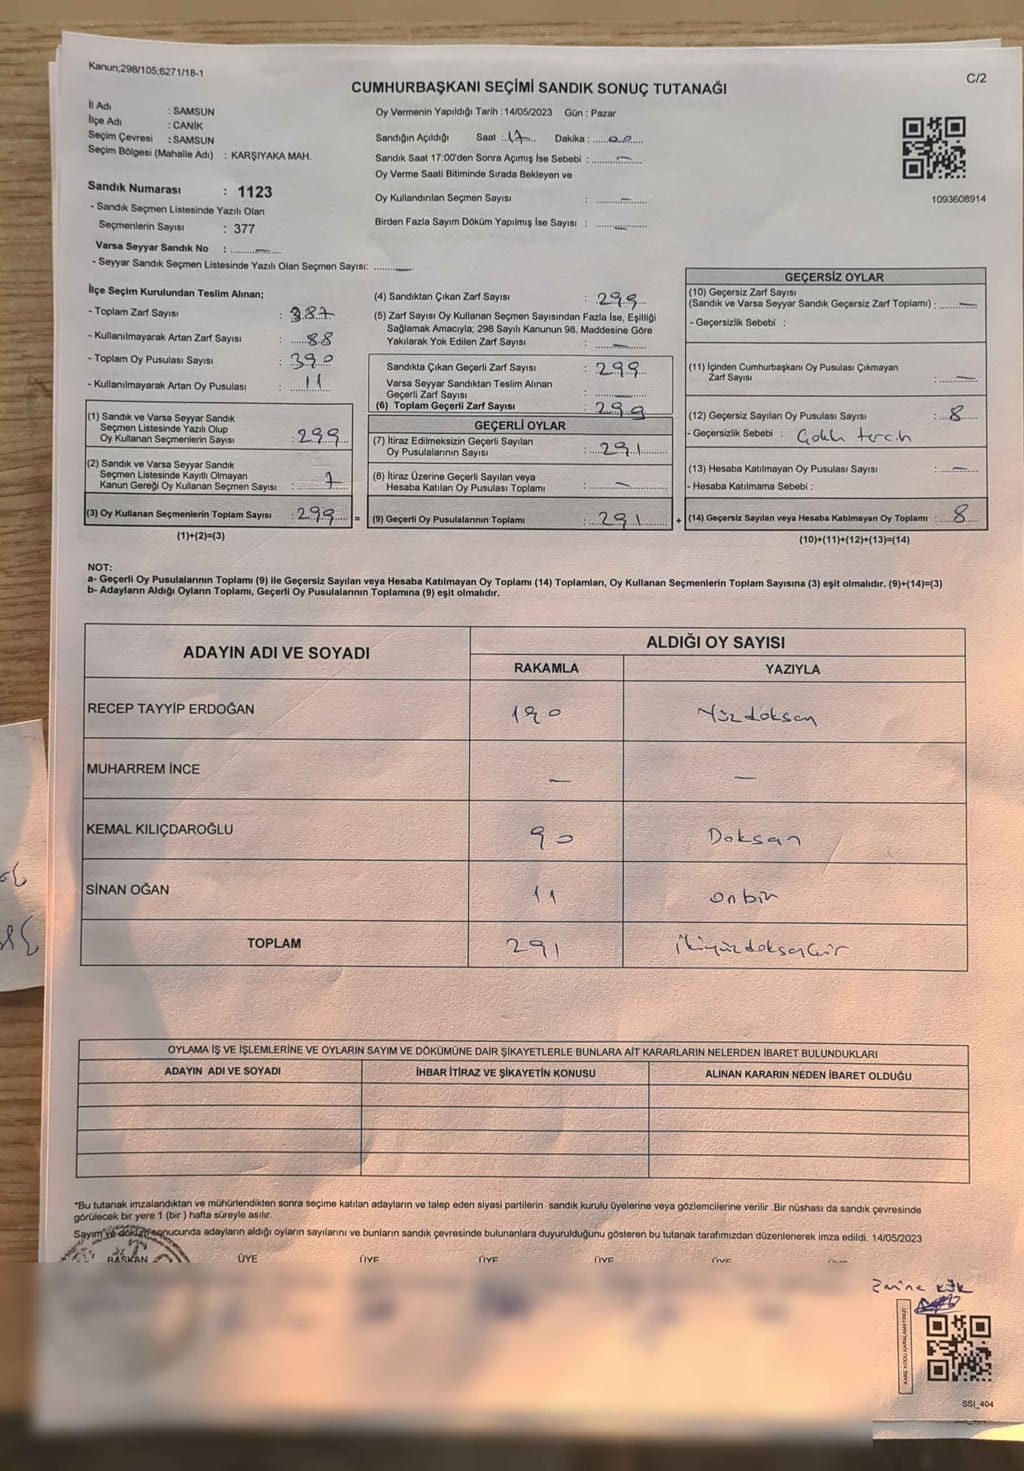 Kanun;298/105;6271/18-1
C/2
CUMHURBAŞKANI SEÇİMİ SANDIK SONUÇ TUTANAĞI
İl Adı : SAMSUN
İlçe Adı : CANİK
Seçim Çevresi : SAMSUN
Seçim Bölgesi (Mahalle Adı) : KARŞIYAKA MAH.
Sandık Numarası : 1123
- Sandık Seçmen Listesinde Yazılı Olan
Seçmenlerin Sayısı : 377
Varsa Seyyar Sandık No : —
- Seyyar Sandık Seçmen Listesinde Yazılı Olan Seçmen Sayısı: —
Oy Vermenin Yapıldığı Tarih :14/05/2023 Gün : Pazar
Sandığın Açıldığı Saat :17 Dakika : 00
Sandık Saat 17:00'den Sonra Açımış İse Sebebi : —
Oy Verme Saati Bitiminde Sırada Bekleyen ve
Oy Kullandırılan Seçmen Sayısı : —
Birden Fazla Sayım Döküm Yapılmış İse Sayısı : —
1093608914
İlçe Seçim Kurulundan Teslim Alınan;
- Toplam Zarf Sayısı : 387
- Kullanılmayarak Artan Zarf Sayısı : 88
- Toplam Oy Pusulası Sayısı : 390
- Kullanılmayarak Artan Oy Pusulası : 11
(1) Sandık ve Varsa Seyyar Sandık
Seçmen Listesinde Yazılı Olup
Oy Kullanan Seçmenlerin Sayısı : 299
(2) Sandık ve Varsa Seyyar Sandık
Seçmen Listesinde Kayıtlı Olmayan
Kanun Gereği Oy Kullanan Seçmen Sayısı : 7
(3) Oy Kullanan Seçmenlerin Toplam Sayısı : 299 =
(1)+(2)=(3)
(4) Sandıktan Çıkan Zarf Sayısı : 299
(5) Zarf Sayısı Oy Kullanan Seçmen Sayısından Fazla İse, Eşitliği
Sağlamak Amacıyla; 298 Sayılı Kanunun 98. Maddesine Göre
Yakılarak Yok Edilen Zarf Sayısı : —
Sandıkta Çıkan Geçerli Zarf Sayısı : 299
Varsa Seyyar Sandıktan Teslim Alınan
Geçerli Zarf Sayısı : —
(6) Toplam Geçerli Zarf Sayısı : 299
GEÇERLİ OYLAR
(7) İtiraz Edilmeksizin Geçerli Sayılan
Oy Pusulalarının Sayısı : 291
(8) İtiraz Üzerine Geçerli Sayılan veya
Hesaba Katılan Oy Pusulası Toplamı : —
(9) Geçerli Oy Pusulalarının Toplamı : 291 +
GEÇERSİZ OYLAR
(10) Geçersiz Zarf Sayısı
(Sandık ve Varsa Seyyar Sandık Geçersiz Zarf Toplamı) : —
- Geçersizlik Sebebi :
(11) İçinden Cumhurbaşkanı Oy Pusulası Çıkmayan
Zarf Sayısı : —
(12) Geçersiz Sayılan Oy Pusulası Sayısı : 8
- Geçersizlik Sebebi : Çoklu tercih
(13) Hesaba Katılmayan Oy Pusulası Sayısı : —
- Hesaba Katılmama Sebebi :
(14) Geçersiz Sayılan veya Hesaba Katılmayan Oy Toplamı : 8
(10)+(11)+(12)+(13)=(14)
NOT:
a- Geçerli Oy Pusulalarının Toplamı (9) ile Geçersiz Sayılan veya Hesaba Katılmayan Oy Toplamı (14) Toplamları, Oy Kullanan Seçmenlerin Toplam Sayısına (3) eşit olmalıdır. (9)+(14)=(3)
b- Adayların Aldığı Oyların Toplamı, Geçerli Oy Pusulalarının Toplamına (9) eşit olmalıdır.
ADAYIN ADI VE SOYADI
ALDIĞI OY SAYISI
RAKAMLA YAZIYLA
RECEP TAYYİP ERDOĞAN 190 Yüzdoksan
MUHARREM İNCE — —
KEMAL KILIÇDAROĞLU 90 Doksan
SİNAN OĞAN 11 onbir
TOPLAM 291 ikiyüzdoksanbir
OYLAMA İŞ VE İŞLEMLERİNE VE OYLARIN SAYIM VE DÖKÜMÜNE DAİR ŞİKAYETLERLE BUNLARA AİT KARARLARIN NELERDEN İBARET BULUNDUKLARI
ADAYIN ADI VE SOYADI İHBAR İTİRAZ VE ŞİKAYETİN KONUSU ALINAN KARARIN NEDEN İBARET OLDUĞU
*Bu tutanak imzalandıktan ve mühürlendikten sonra seçime katılan adayların ve talep eden siyasi partilerin sandık kurulu üyelerine veya gözlemcilerine verilir .Bir nüshası da sandık çevresinde
görülecek bir yere 1 (bir ) hafta süreyle asılır.
Sayım ve döküm sonucunda adayların aldığı oyların sayılarını ve bunların sandık çevresinde bulunanlara duyurulduğunu gösteren bu tutanak tarafımızdan düzenlenerek imza edildi. 14/05/2023
BAŞKAN ÜYE ÜYE ÜYE ÜYE ÜYE
Emine KÖK
KARE KODU KARALAMAYINIZ!
SSI_404